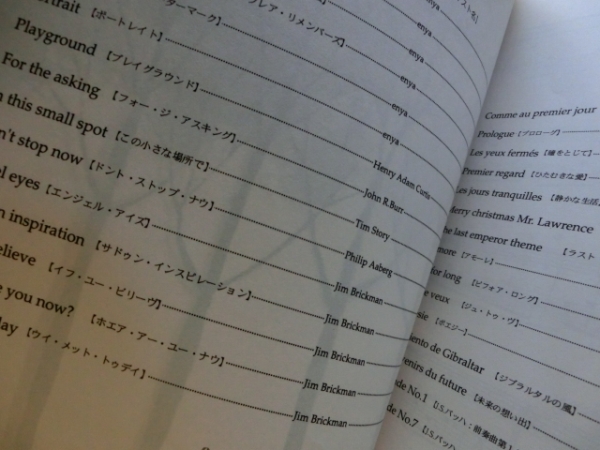 スト名】
フレア・リメンバーズ】 enya
ターマーク】 enya
trait 【ポートレイト】 enya
Playground 【プレイグラウンド】 Henry Adam Curtis
For the asking 【フォー・ジ・アスキング】 John R.Burr
this small spot 【この小さな場所で】 Tim Story
n't stop now 【ドント・ストップ・ナウ】 Philip Aaberg
el eyes 【エンジェル・アイズ】 Jim Brickman
n inspiration 【サドゥン・インスピレーション】 Jim Brickman
elieve 【イフ・ユー・ビリーヴ】 Jim Brickman
e you now? 【ホエア・アー・ユー・ナウ】 Jim Brickman
day 【ウイ・メット・トゥデイ】 Jim Brickman
Comme au premier jour
Prologue 【プロローグ】
Les yeux fermés 【瞳をとじて】
Premier regard 【ひたむきな愛】
Les jours tranquilles 【静かな生活
Merry christmas Mr. Lawrence
he last emperor theme 【ラスト
more 【アモーレ】
for long 【ビフォア・ロング】
e veux 【ジュ・トゥ・ヴ】
sie 【ポエジー】
ento de Gibraltar 【ジブラルタルの風】
enirs du future 【未来の想い出】
de No.1 【J.S.バッハ：前奏曲第1
de No.7 【J.S.バッハ